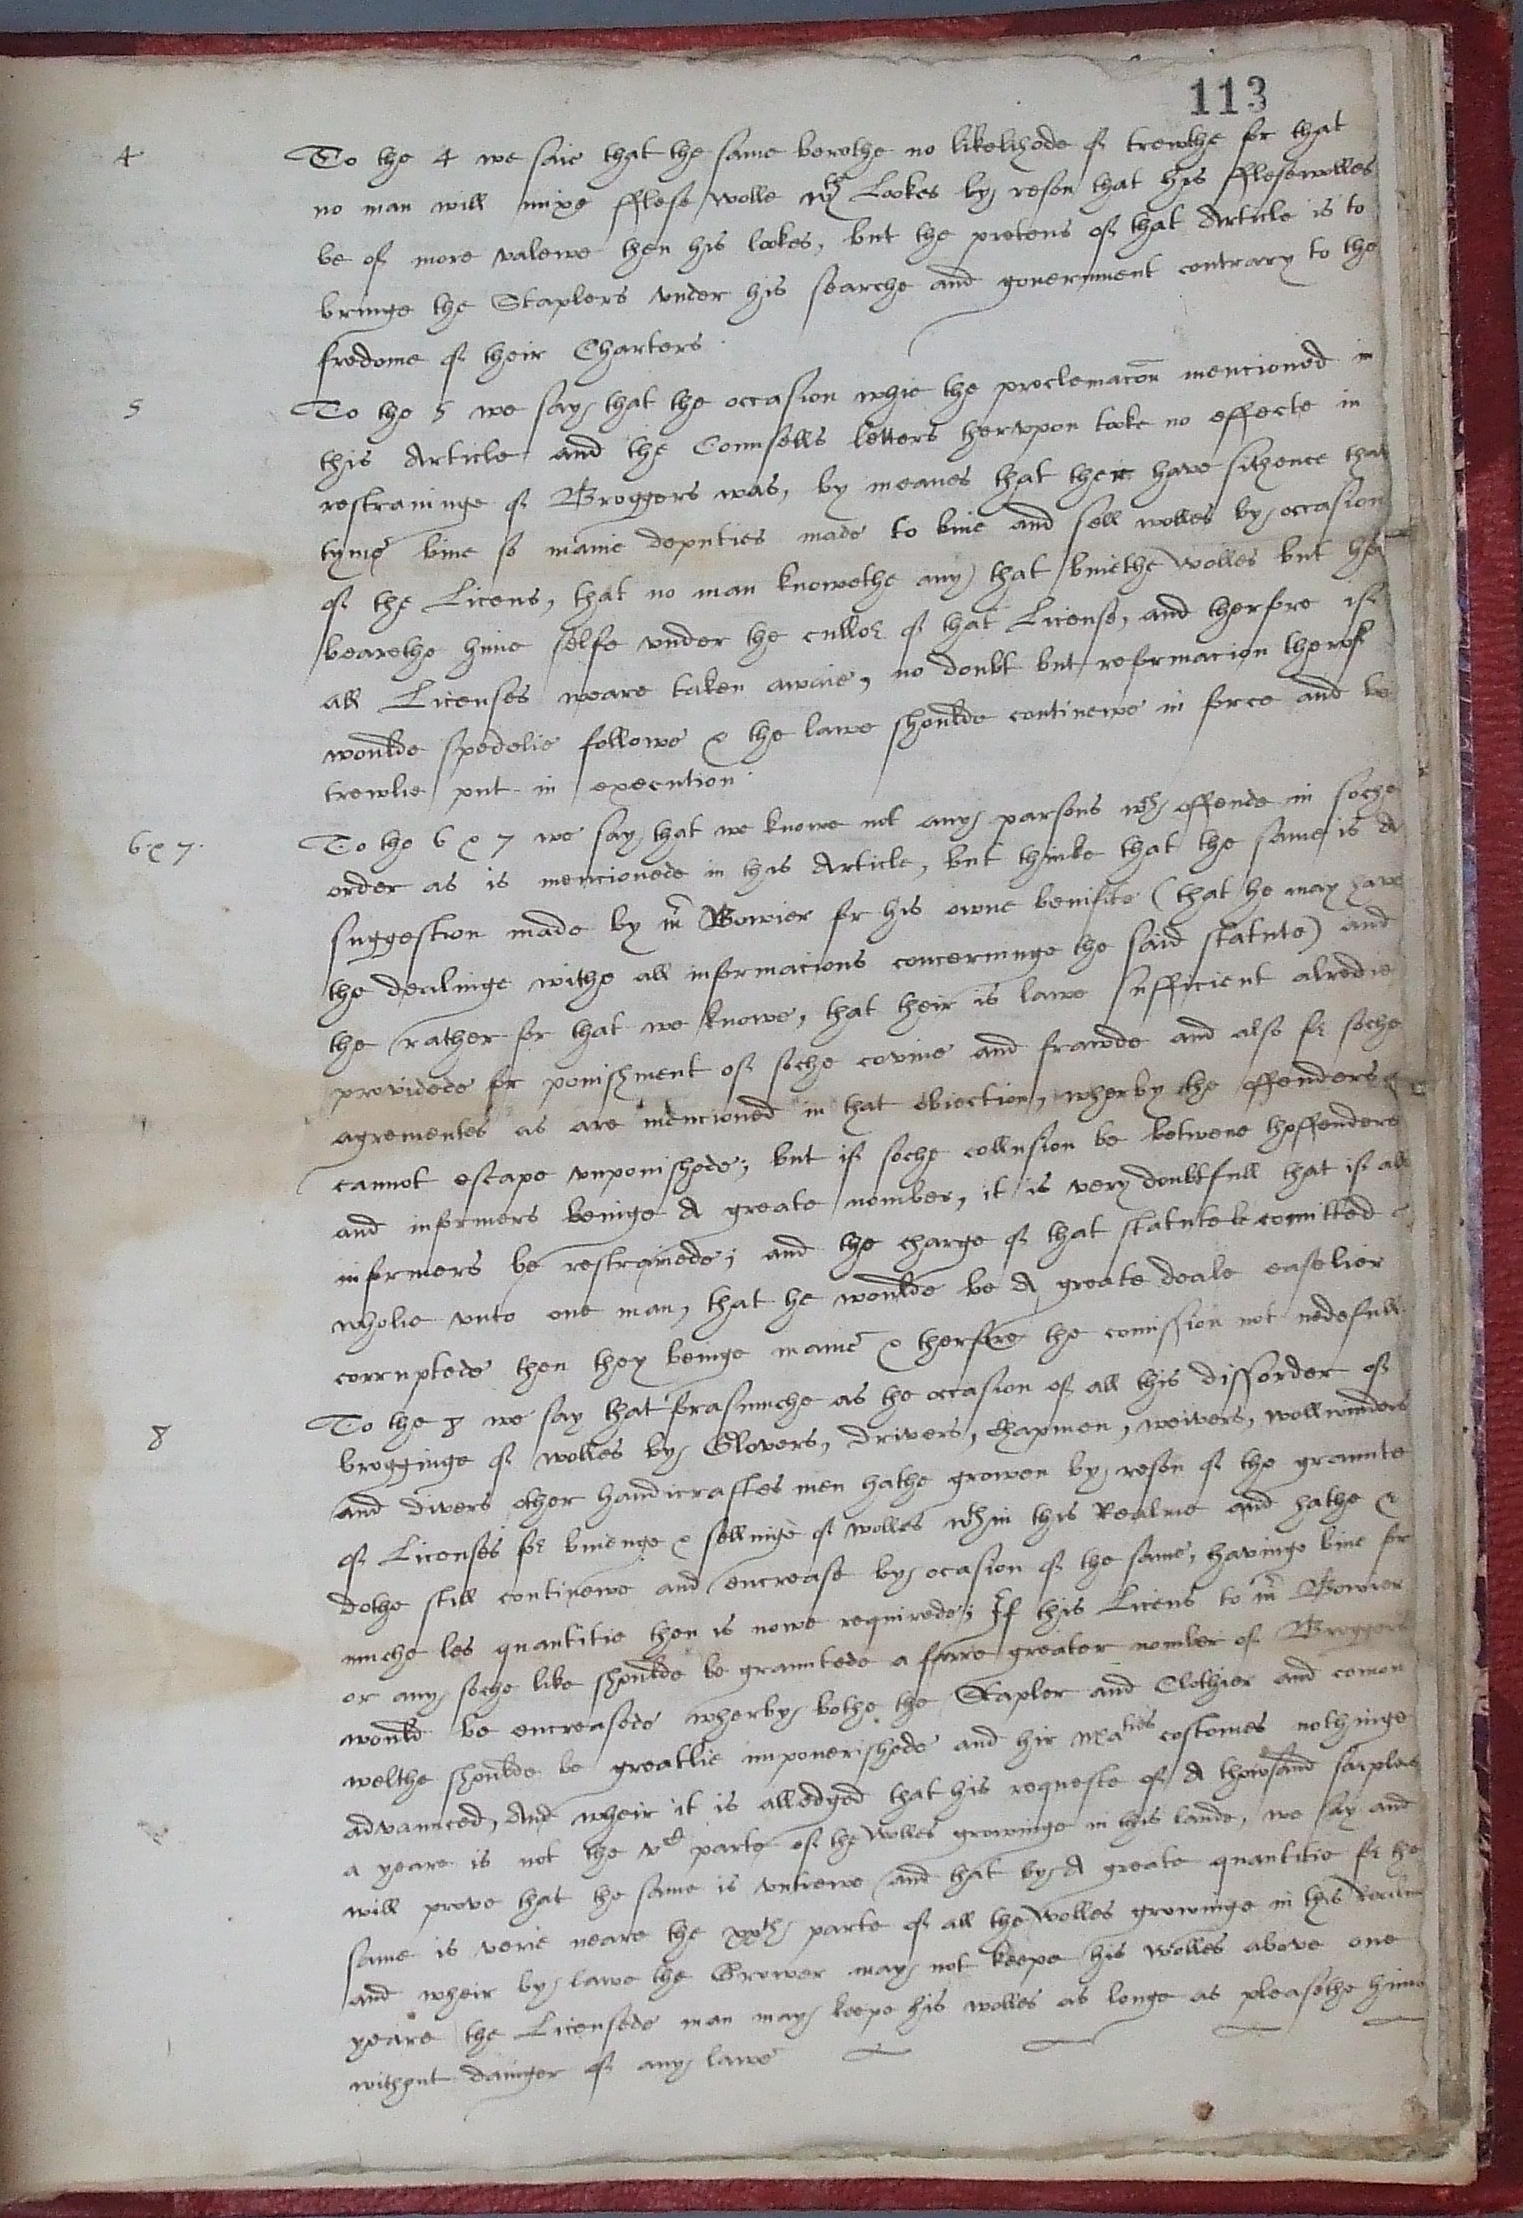 113
4 To the 4 we saie that the same berethe no likelihode of trewthe for that
no man will mixe fflese wolle wth Lockes by reson that his fflesewolles
be of more valewe then his lockes, but the pretens of that Article is to
bringe the Staplers vnder his searche and gouernment contrary to the
fredome of their Charters.
5 To the 5 we say that the occasion whie the proclemacon mencioned in
this Article and the Counsells letters hervpon tooke no effecte in
restraininge of Broggers was, by meanes that theire have sithence that
tyme bine so manie deputies made to buie and sell wolles by occasion
of the Licens, that no man knowethe any that buiethe wolles but he
bearethe hime selfe vnder the cullor of that License, and therfore if
all Licenses weare taken awaie, no doubt but reformacion therof
woulde spedelie followe & the lawe shoulde continewe in force and be
trewlie put in execution.
6 & 7. To the 6 & 7 we say that we knowe not any parsons wch offende in soche
order as is mencionede in this Article, but thinke that the same is A
suggestion made by mr Bowier for his owne benifite (that he may have
the dealinge withe all informacions concerninge the said statute) and
the rather for that we knowe, that their is lawe sufficient alredie
providede for ponishment of soche covine and frawde and also for soche
agrementes as are mencioned in that obiection, wherby the offenders
cannot escape vnponishede; but if soche collusion be betwene thoffenders
and informers beinge A greate nomber, it is very doubtfull that if all
informers be restrainede; and the charge of that statute be comitted
wholie vnto one man, that he woulde be A greate deale easelier
corruptede then they beinge manie & therfore the comission not nedefull.
8 To the 8 we say that forasmuche as the occasion of all this dissorder of
brogginge of wolles by Glovers, drivers, chapmen, weivers, wollwinders
and divers other handicraftes men hathe growen by reson of the graunte
of Licenses for buienge & sellinge of wolles wthin this Realme and hathe &
dothe still continewe and encrease by ocasion of the same, havinge bine for
muche les quantitie then is nowe requirede; If this Licens to mr Bowier
or any soche like shoulde be grauntede a farre greater nomber of Broggers
would be encreasede wherby bothe the Stapler and Clothier and comon
welthe shoulde be greatlie impouerishede and hir maties costomes nothinge
advaunced, And wheir it is alledged that his requeste of A thowsand sarplers
a yeare is not the vd parte of the wolles growinge in this lande, we say and
will prove that the same is vntrewe and that by A greate quantitie for the
same is verie neare the xxth parte of all the wolles growinge in this Realm
and wheir by lawe the Grower may not keepe his wolles above one
yeare the Licensede man may keepe his wolles as longe as pleasethe hime
without dainger of any lawe